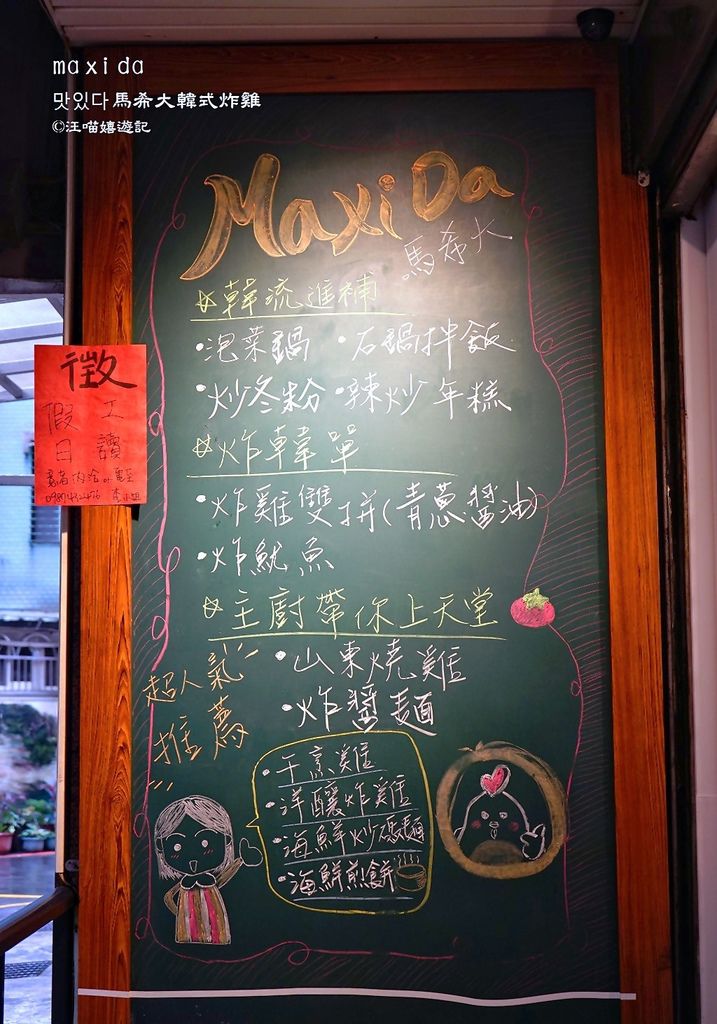 maxida
맛있다馬希大韓式炸雞
©汪喵嬉遊記
Maxi Da
馬希大
韓流進補
·泡菜鍋 ·石鍋拌飯
·炒冬粉 ·辣炒年糕
炸韓單
·炸雞雙拼(青蔥.醬油)
·炸魷魚
主廚帶你上天堂
·山東燒雞
·炸醬麵
超人氣
推薦
·干烹雞
·洋釀炸雞
·海鮮炒碼麵
·海鮮煎餅
徵
假工
日讀